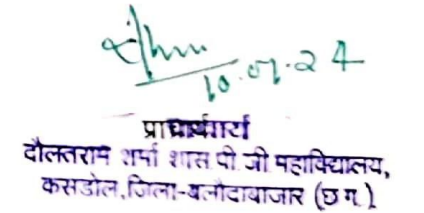 10.07.24
प्राचार्य
दौलतराम शर्मा शास.पी.जी महाविद्यालय,
कसडोल,जिला-बलौदाबाजार (छ.ग.)